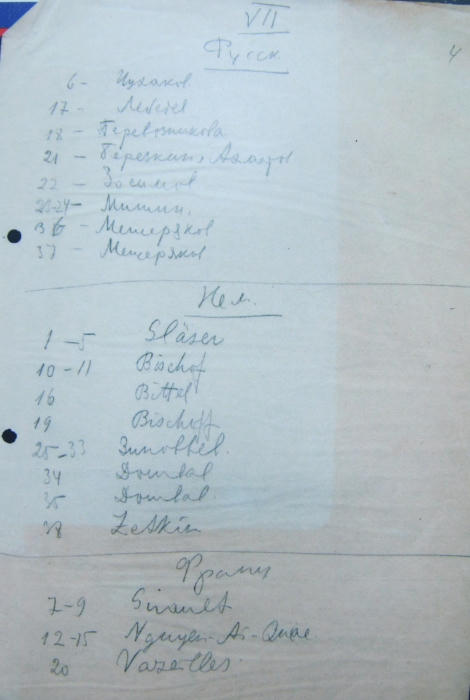 VII
4
Русск.
6 - Чухаков
17 - Лебедев
18 - Перевозникова
21 - Березкин,
22 -
23-24 - Митин,
36 - Мещеряков
37 - Мещеряков
Нем.
1-5 Gläser
10-11 Bischof
16 Bittel
19 Bischoff
25-33
34 Dombal
35 Dombal
38 Zetkin
Франц
7-9 Girault
12-15 Nguyen-Ai-Quac
20 Vazeilles